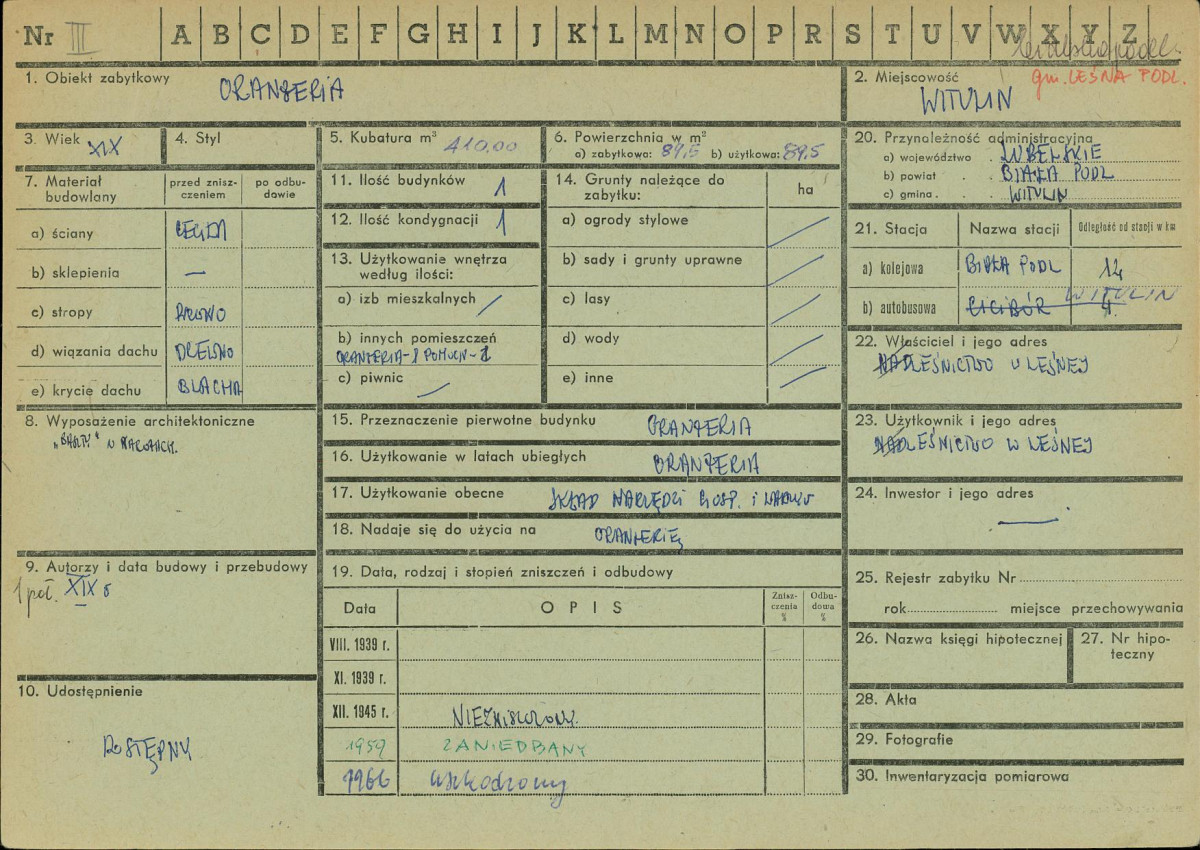 Nr III A B C D E F G H I J K L M N O P R S T U V W X Y Z
1. Obiekt zabytkowy
ORANŻERIA
2. Miejscowość
gm. LEŚNA PODL.
WITULIN
3. Wiek XIX
4. Styl
5. Kubatura m³ 410.00
6. Powierzchnia w m²
a) zabytkowa: 89,5 b) użytkowa: 89,5
7. Materiał budowlany
przed zniszczeniem
po odbudowie
a) ściany CEGŁA
b) sklepienia —
c) stropy DREWNO
d) wiązania dachu DREWNO
e) krycie dachu BLACHA
8. Wyposażenie architektoniczne
9. Autorzy i data budowy i przebudowy
1 poł. XIX
10. Udostępnienie
DOSTĘPNY
11. Ilość budynków 1
12. Ilość kondygnacji 1
13. Użytkowanie wnętrza
według ilości:
a) izb mieszkalnych /
b) innych pomieszczeń
ORANŻERIA-1
c) piwnic /
14. Grunty należące do
zabytku:
ha
a) ogrody stylowe /
b) sady i grunty uprawne /
c) lasy /
d) wody /
e) inne /
15. Przeznaczenie pierwotne budynku ORANŻERIA
16. Użytkowanie w latach ubiegłych ORANŻERIA
17. Użytkowanie obecne SKŁAD NARZĘDZI GOSP. i
18. Nadaje się do użycia na ORANŻERIĘ
19. Data, rodzaj i stopień zniszczeń i odbudowy
Data OPIS Zniszczenia % Odbudowa %
VIII. 1939 r.
XI. 1939 r.
XII. 1945 r. NIEZNISZCZONY.
1959 ZANIEDBANY
1966 uszkodzony
20. Przynależność administracyjna
a) województwo . LUBELSKIE
b) powiat . . BIAŁA PODL
c) gmina . . WITULIN
21. Stacja
Nazwa stacji
Odległość od stacji w km
a) kolejowa BIAŁA PODL 14
b) autobusowa CICIBÓR WITULIN 4.
22. Właściciel i jego adres
NADLEŚNICTWO W LEŚNEJ
23. Użytkownik i jego adres
NADLEŚNICTWO W LEŚNEJ
24. Inwestor i jego adres
—
25. Rejestr zabytku Nr
rok miejsce przechowywania
26. Nazwa księgi hipotecznej
27. Nr hipoteczny
28. Akta
29. Fotografie
30. Inwentaryzacja pomiarowa